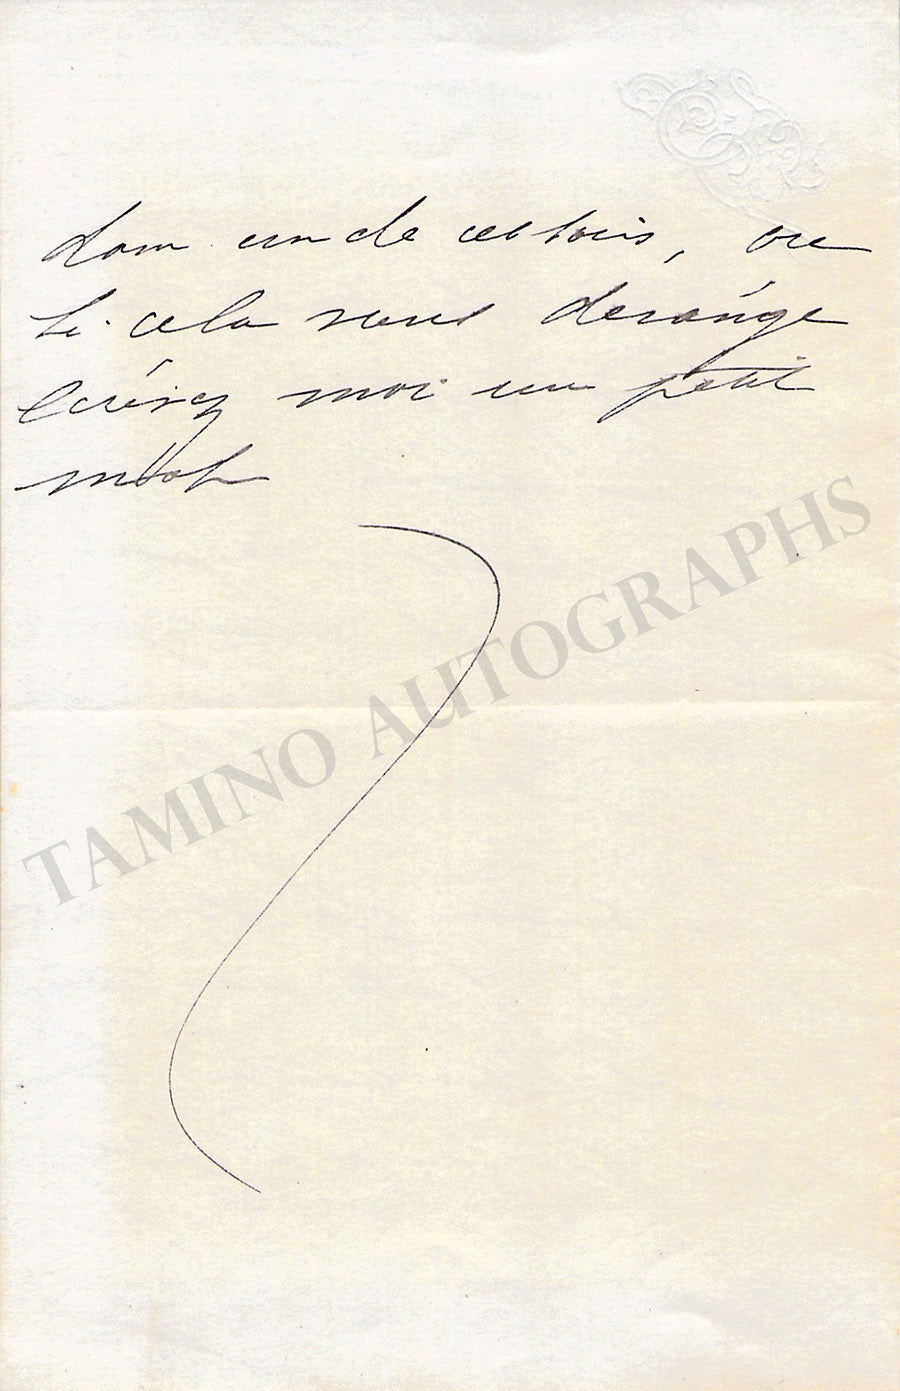 dans un de ces soirs, ou
si cela vous derange
écrivez moi un petit
mot
TAMINO AUTOGRAPHS